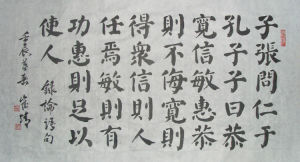 子張問仁于
孔子子曰恭
寬信敏惠恭
則不侮寬則
得衆信則人
任焉敏則有
功惠則足以
使人 錄論語句
壬辰